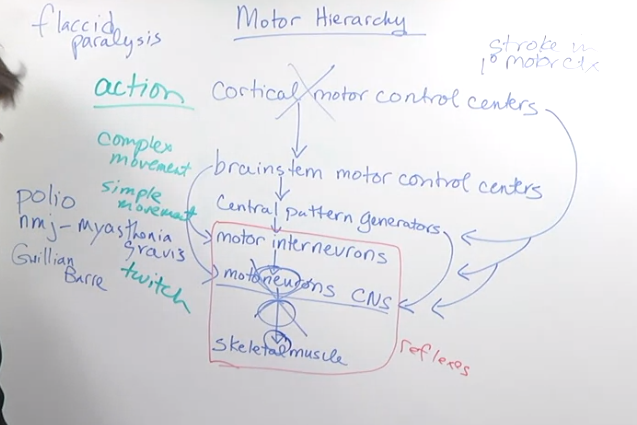 flaccid
paralysis
Motor Hierarchy
stroke in
1° motor ctx
action
cortical motor control centers
complex
movement
brainstem motor control centers
simple
movement
central pattern generators
polio
nmj - myasthenia
gravis
motor interneurons
Guillian
Barre
twitch
motoneurons CNS
skeletal muscle
reflexes